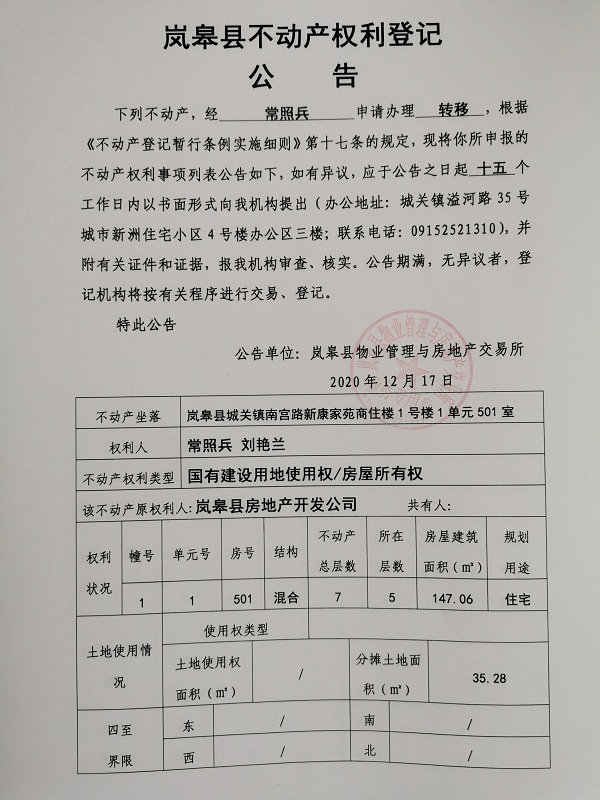 岚皋县不动产权利登记
公 告
下列不动产，经 常照兵 申请办理 转移 ，根据
《不动产登记暂行条例实施细则》第十七条的规定，现将你所申报的
不动产权利事项列表公告如下，如有异议，应于公告之日起 十五 个
工作日内以书面形式向我机构提出（办公地址：城关镇溢河路 35 号
城市新洲住宅小区 4 号楼办公区三楼；联系电话：09152521310），并
附有关证件和证据，报我机构审查、核实。公告期满，无异议者，登
记机构将按有关程序进行交易、登记。
特此公告
公告单位：岚皋县物业管理与房地产交易所
2020 年 12 月 17 日
不动产坐落 岚皋县城关镇南宫路新康家苑商住楼 1 号楼 1 单元 501 室
权利人 常照兵 刘艳兰
不动产权利类型 国有建设用地使用权/房屋所有权
该不动产原权利人: 岚皋县房地产开发公司 共有人：
权利状况 幢号 单元号 房号 结构 不动产总层数 所在层数 房屋建筑面积（㎡） 规划用途
1 1 501 混合 7 5 147.06 住宅
土地使用情况 使用权类型
土地使用权面积（㎡） / 分摊土地面积（㎡） 35.28
四至界限 东 / 南 /
西 / 北 /